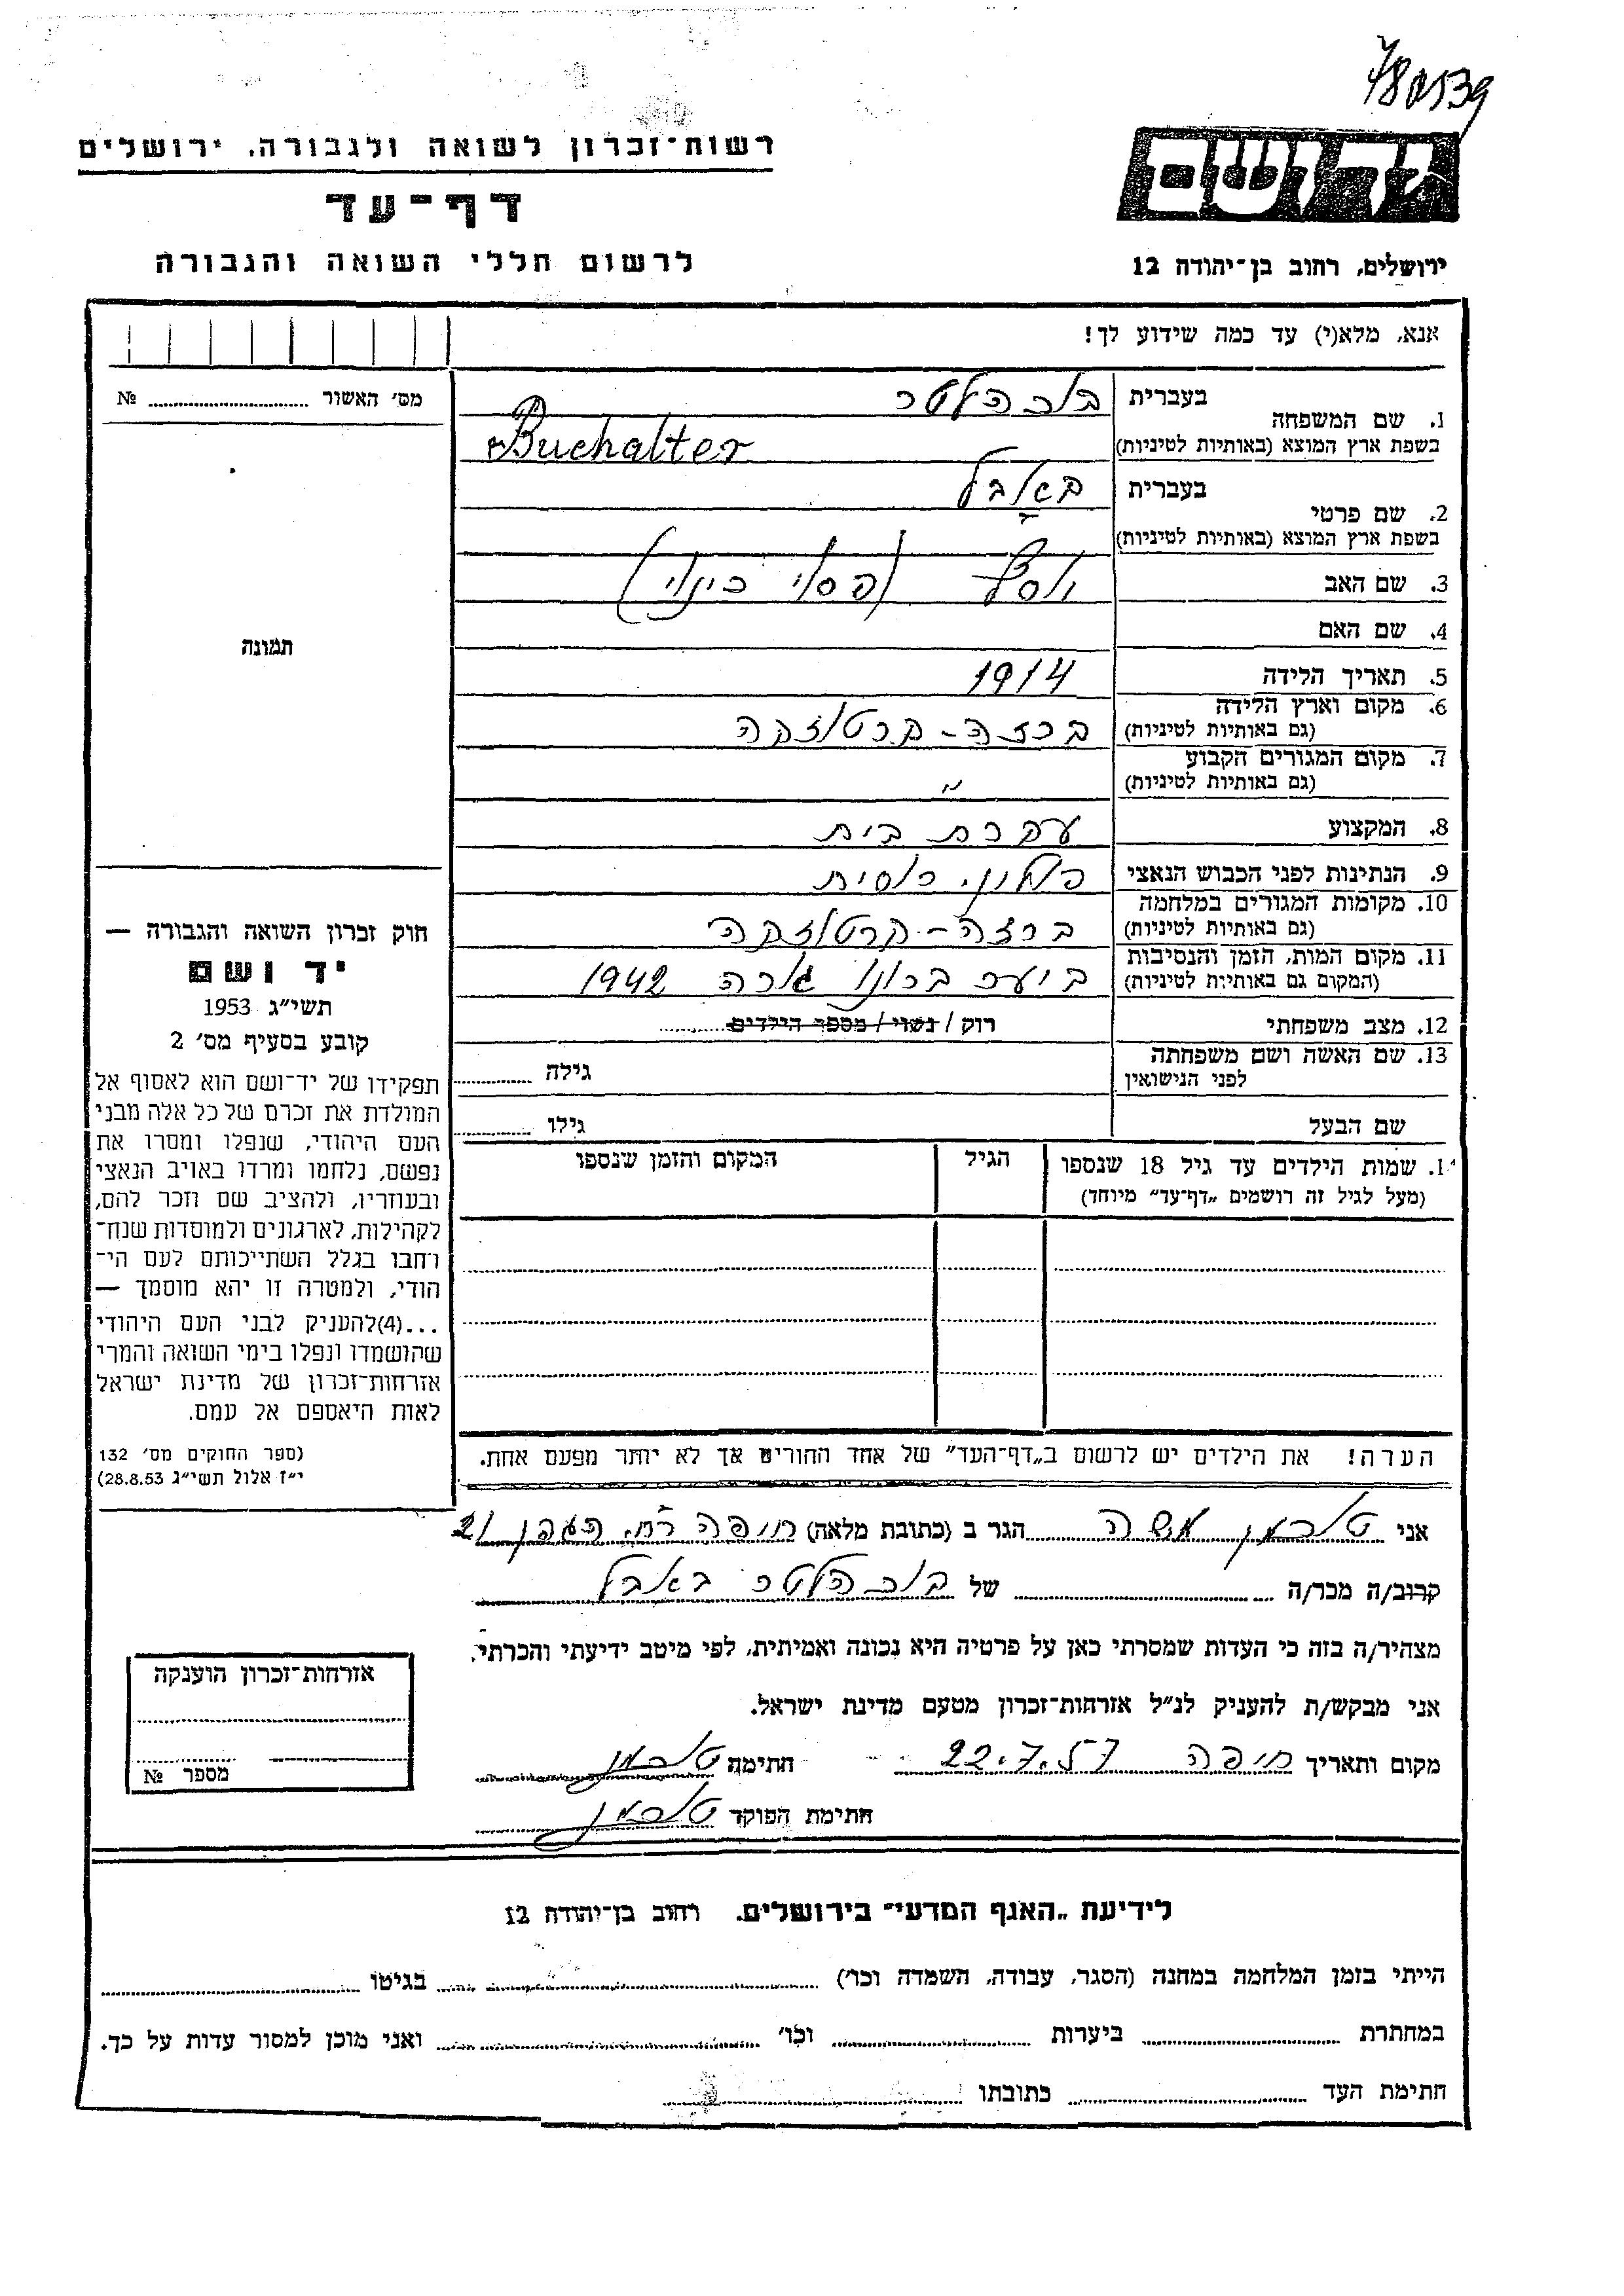 780539
רשות־זכרון לשואה ולגבורה, ירושלים
דף־עד
לרשום חללי השואה והגבורה
יד ושם
ירושלים, רחוב בן־יהודה 12
אנא, מלא(י) עד כמה שידוע לך!
מס׳ האשור № ........
1. שם המשפחה
בעברית בוכהלטר
בשפת ארץ המוצא (באותיות לטיניות) Buchalter
2. שם פרטי
בעברית באבל
בשפת ארץ המוצא (באותיות לטיניות)
3. שם האב יוסף
4. שם האם
5. תאריך הלידה 1914
6. מקום וארץ הלידה
(גם באותיות לטיניות) ברזה - קרטוזקה
7. מקום המגורים הקבוע
(גם באותיות לטיניות) "
8. המקצוע עקרת בית
9. הנתינות לפני הכבוש הנאצי
10. מקומות המגורים במלחמה
(גם באותיות לטיניות) ברזה - קרטוזקה
11. מקום המות, הזמן והנסיבות
(המקום גם באותיות לטיניות) ביער ברונו גורה 1942
12. מצב משפחתי רוק / נשוי / מספר הילדים........
13. שם האשה ושם משפחתה
לפני הנישואין גילה ........
שם הבעל גילו ........
1. שמות הילדים עד גיל 18 שנספו
(מעל לגיל זה רושמים „דף־עד״ מיוחד)
הגיל
המקום והזמן שנספו
תמונה
חוק זכרון השואה והגבורה —
יד ושם
תשי״ג 1953
קובע בסעיף מס׳ 2
תפקידו של יד־ושם הוא לאסוף אל
המולדת את זכרם של כל אלה מבני
העם היהודי, שנפלו ומסרו את
נפשם, נלחמו ומרדו באויב הנאצי
ובעוזריו, ולהציב שם וזכר להם,
לקהילות, לארגונים ולמוסדות שנח־
רחבו בגלל השתייכותם לעם הי־
הודי, ולמטרה זו יהא מוסמך —
...(4)להעניק לבני העם היהודי
שהושמדו ונפלו בימי השואה והמרי
אזרחות־זכרון של מדינת ישראל
לאות היאספם אל עמם.
(ספר החוקים מס׳ 132
י״ז אלול תשי״ג 28.8.53)
הערה! את הילדים יש לרשום ב„דף־העד״ של אחד ההורים אך לא יותר מפעם אחת.
אני טוכמן משה הגר ב (כתובת מלאה) חיפה רח. הגפן 21
קרוב/ה מכר/ה ........ של בוכהלטר באבל
מצהיר/ה בזה כי העדות שמסרתי כאן על פרטיה היא נכונה ואמיתית, לפי מיטב ידיעתי והכרתי.
אני מבקש/ת להעניק לנ״ל אזרחות־זכרון מטעם מדינת ישראל.
מקום ותאריך חיפה 22.7.57 חתימה טוכמן
חתימת הפוקד טוכמן
אזרחות־זכרון הוענקה
מספר №
לידיעת „האגף המדעי״ בירושלים, רחוב בן־יהודה 12
הייתי בזמן המלחמה במחנה (הסגר, עבודה, השמדה וכו׳) ........ בגיטו ........
במחתרת ........ ביערות ........ וכו׳ ........ ואני מוכן למסור עדות על כך.
חתימת העד ........ כתובתו ........